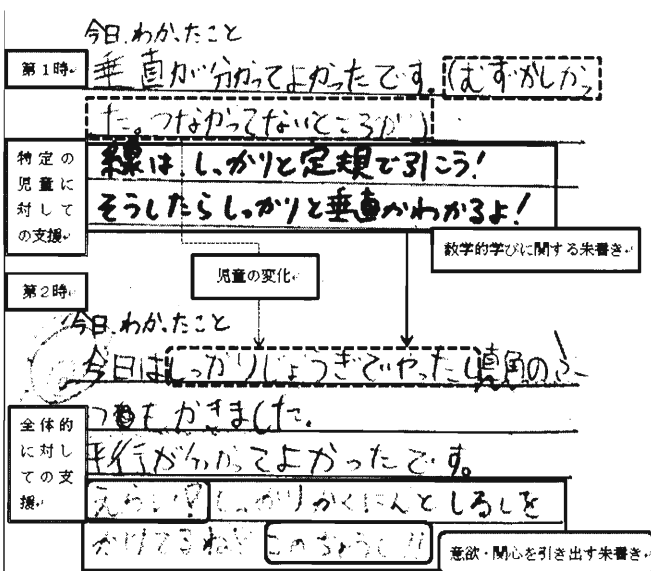 今日わかったこと
第1時
垂直が分かってよかったです。(むずかしかっ
た。つながってないところが)
特定の
児童に
対して
の支援
線は、しっかりと定規で引こう!
そうしたらしっかりと垂直がわかるよ!
数学的学びに関する朱書き
児童の変化
第2時
今日わかったこと
今日はしっかりじょうぎでやったし直角のふ
つ
もかきました。
平行が分かってよかったです。
全体的
に対し
ての支
援
えらい!しっかりかくにんとしるしを
かけてるね!このちょうし!!
意欲・関心を引き出す朱書き